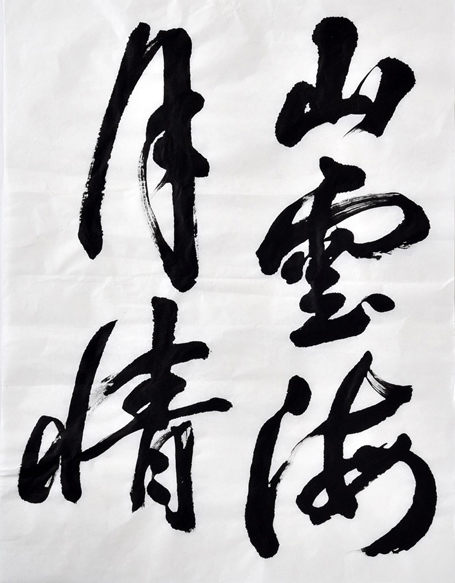 山雲海
月情